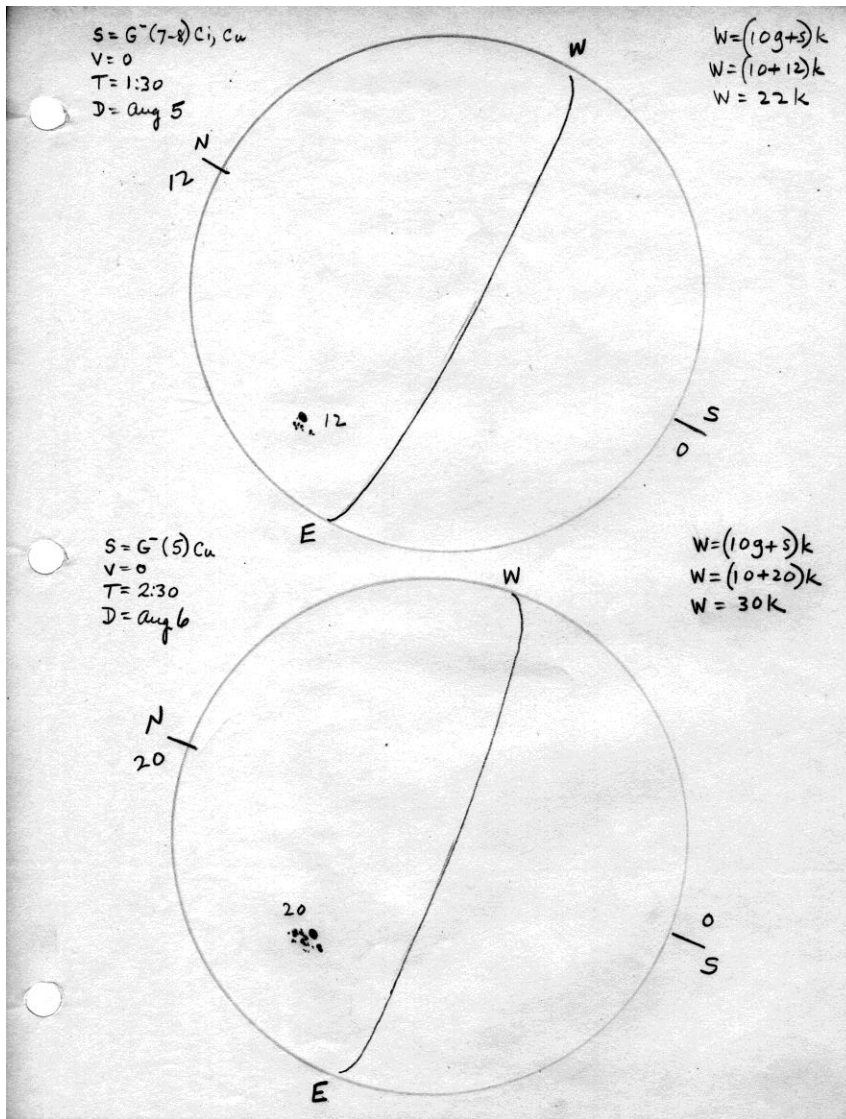 S = G⁻(7-8) Ci, Cu
V = 0
T = 1:30
D = Aug 5
W=(10g+s)k
W=(10+12)k
W = 22k
W
N
12
12
S
0
E
S = G⁻(5) Cu
V = 0
T = 2:30
D = Aug 6
W=(10g+s)k
W=(10+20)k
W = 30k
W
N
20
20
0
S
E